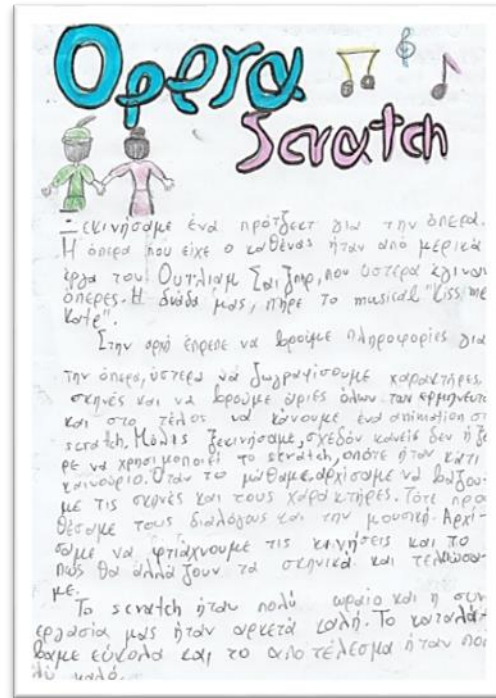 Opera
Scratch
Ξεκινήσαμε ένα πρότζεκτ για την όπερα.
Η όπερα που είχε ο καθένας ήταν από μερικά
έργα του Ουίλιαμ Σαίξπηρ, που ύστερα έγιναν
όπερες. Η ομάδα μας, πήρε το musical "Kiss me
Kate".
Στην αρχή έπρεπε να βρούμε πληροφορίες για
την όπερα, ύστερα να ζωγραφίσουμε χαρακτήρες,
σκηνές και να βρούμε άριες όλων των ερμηνευτ
και στο τέλος να κάνουμε ένα animation στ
scratch. Μόλις ξεκινήσαμε, σχεδόν κανείς δεν ήξε
ρε να χρησιμοποιεί το scratch, οπότε ήταν κάτι
καινούριο. Όταν το μάθαμε, αρχίσαμε να βάζου-
με τις σκηνές και τους χαρακτήρες. Τότε προσ
θέσαμε τους διαλόγους και την μουσική. Αρχί-
σαμε να φτιάχνουμε τις κινήσεις και το
πώς θα αλλάζουν τα σκηνικά και τελειώσα-
με.
Το scratch ήταν πολύ ωραίο και η συν
εργασία μας ήταν αρκετά καλή. Το καταλά-
βαμε εύκολα και το αποτέλεσμα ήταν πο
λύ καλό.